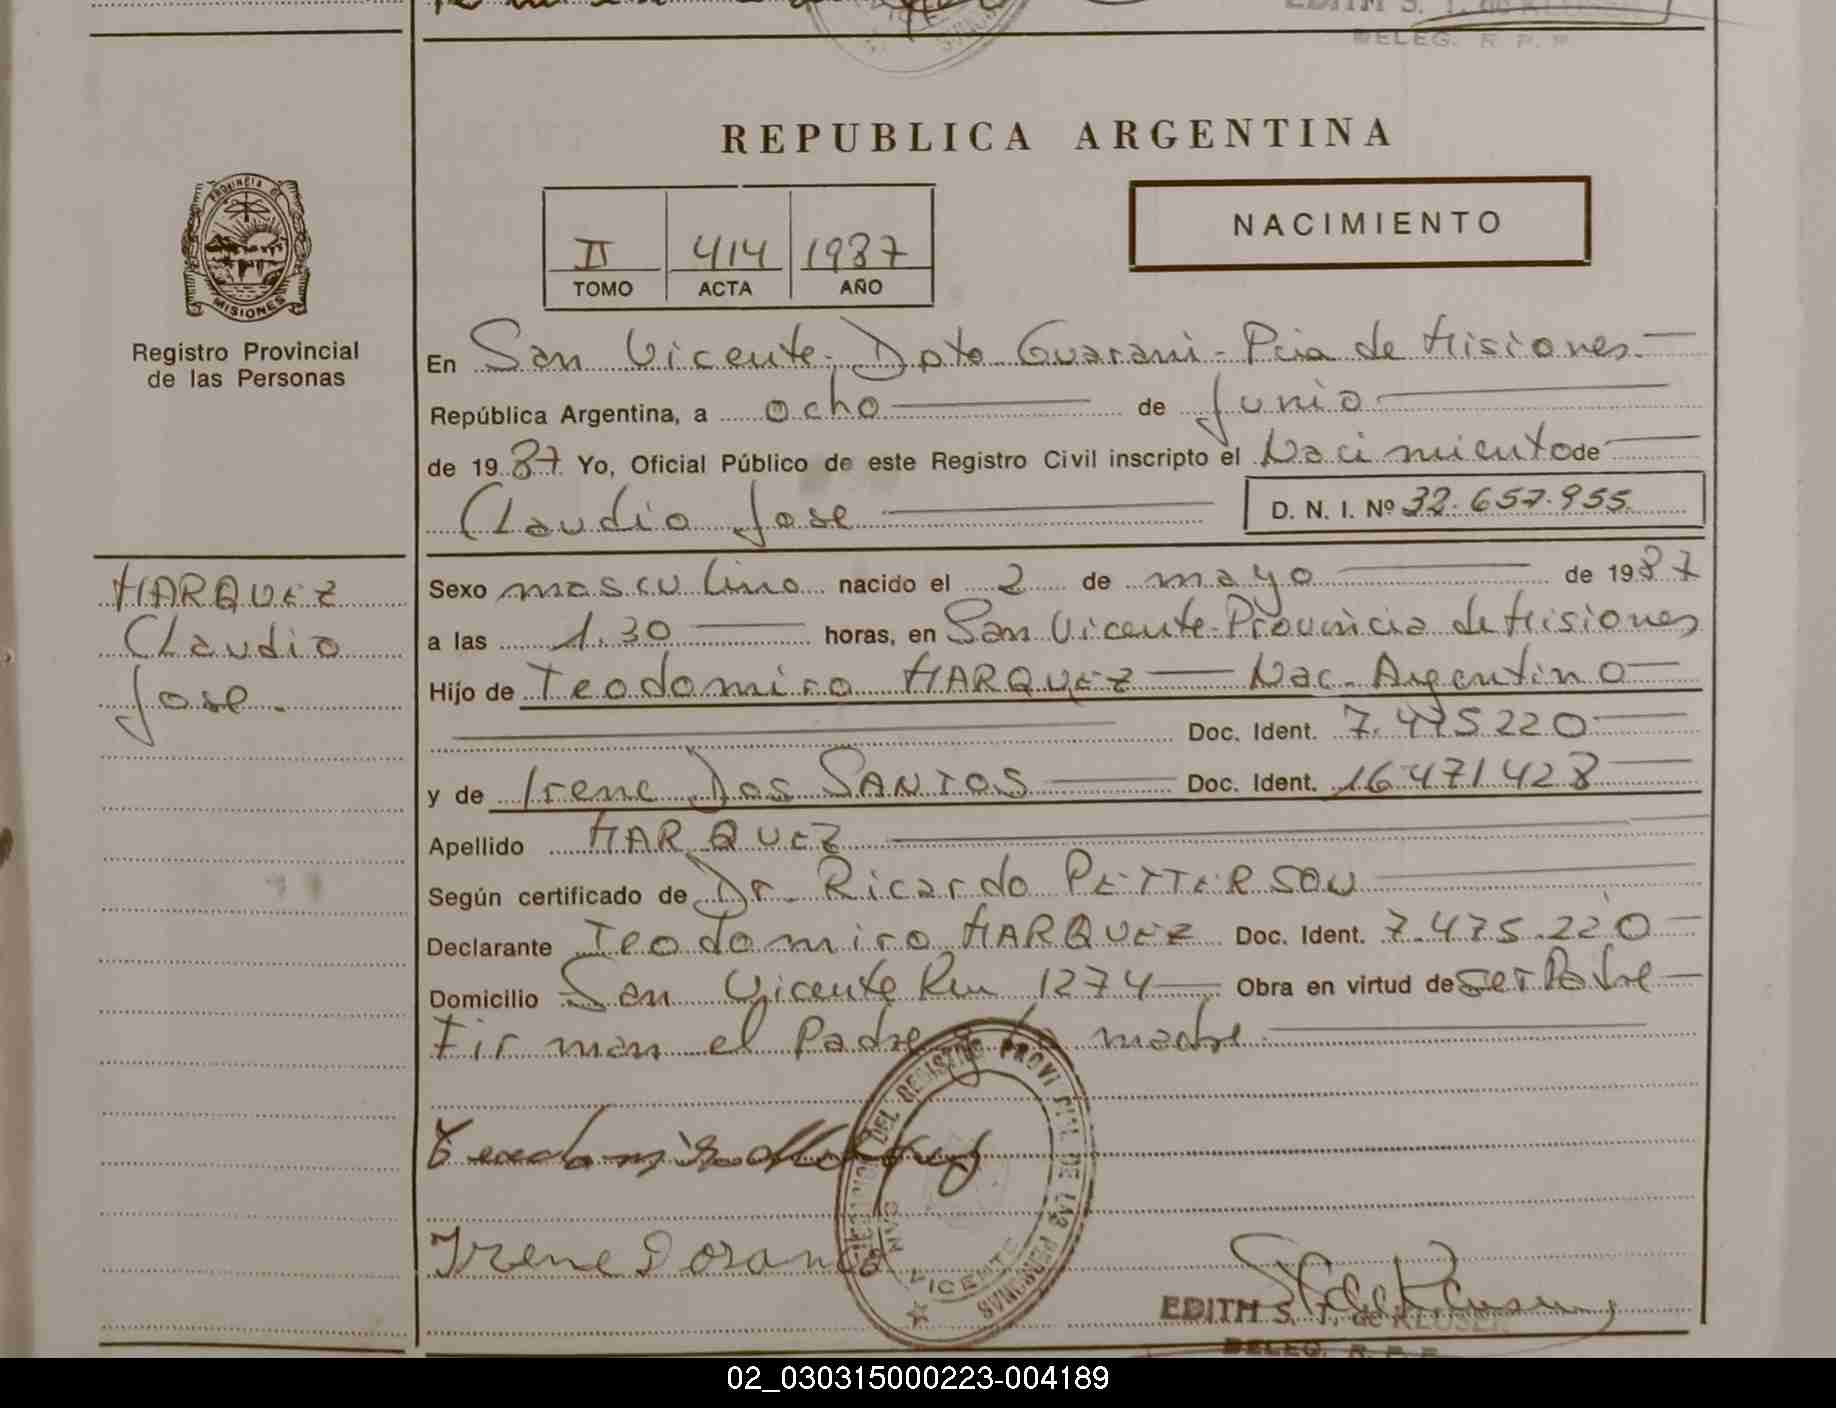 DELEG. R. P. P.
REPUBLICA ARGENTINA
NACIMIENTO
II 414 1987
TOMO ACTA AÑO
PROVINCIA DE
MISIONES
Registro Provincial
de las Personas
En San Vicente - Dpto Guarani - Pcia de Misiones.
República Argentina, a ocho de Junio
de 1987 Yo, Oficial Público de este Registro Civil inscripto el Nacimiento de
Claudio Jose D. N. I. Nº 32.657.955
MARQUEZ
Claudio
Jose.
Sexo masculino nacido el 2 de mayo de 1987
a las 1.30 horas, en San Vicente - Provincia de Misiones
Hijo de Teodomiro MARQUEZ Nac. Argentino
Doc. Ident. 7.475.220
y de Irene Dos SANTOS Doc. Ident. 16.471.428
Apellido MARQUEZ
Según certificado de Dr. Ricardo PETTERSON
Declarante Teodomiro MARQUEZ Doc. Ident. 7.475.220
Domicilio San Vicente Km 1274 Obra en virtud de ser Padre
Firman el Padre y la madre
DEL REGISTRO PROVINCIAL DE LAS PERSONAS
SAN VICENTE
Irene
EDITH S. T. de KLUSER
DELEG. R. P. P.
02_030315000223-004189